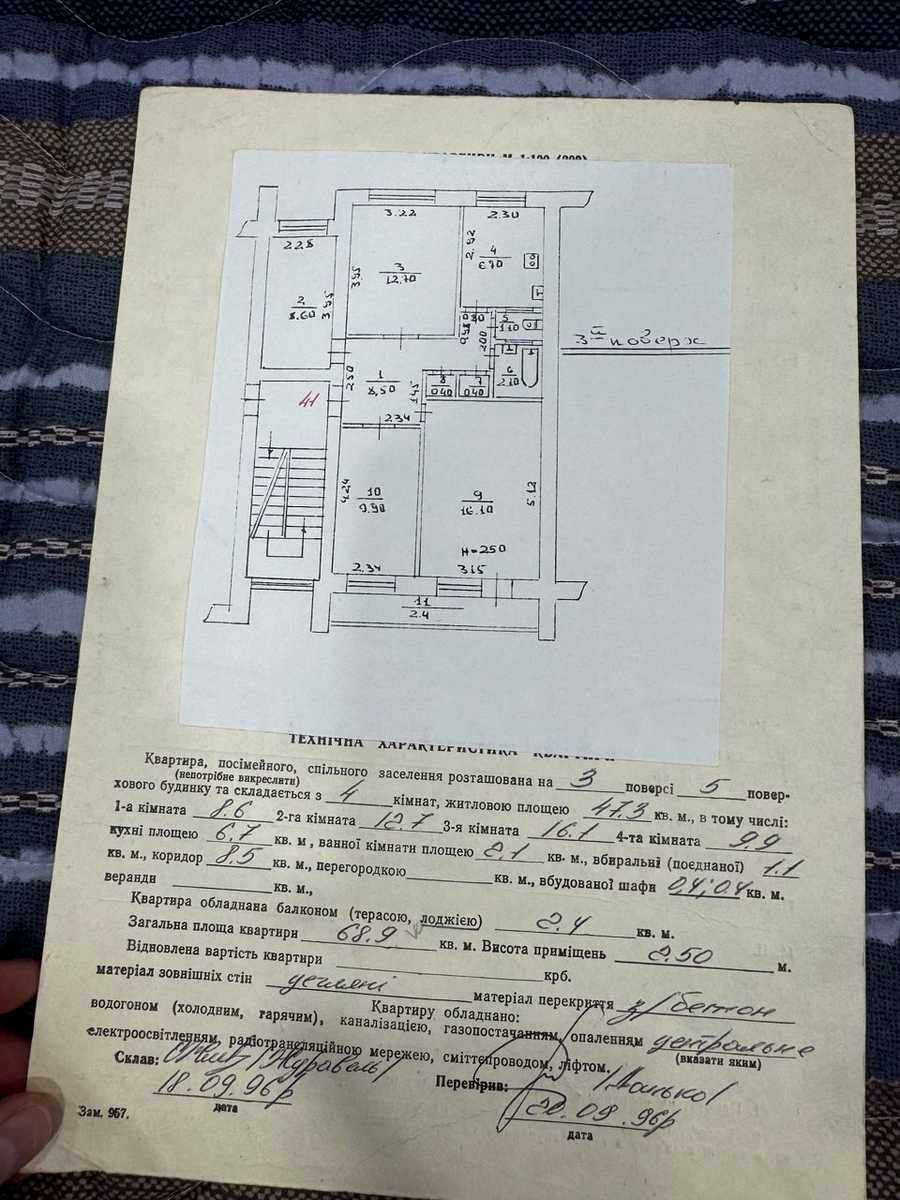 3.22
2.30
2.28
2.92
4
6.70
3
12.70
3.95
2
8.60
5
1.10
0.80
2.00
3й поверх
6
2.10
2.50
1
8,50
1.45
8
0.40
7
0.40
41
2.34
4.24
10
9.90
9
16.10
5.12
H=250
2.34
3.15
11
2.4
ТЕХНІЧНА ХАРАКТЕРИСТИКА КВАРТИРИ
Квартира, посімейного, спільного заселення розташована на 3 поверсі 5 повер-
(непотрібне викреслити)
хового будинку та складається з 4 кімнат, житловою площею 47.3 кв. м., в тому числі:
1-а кімната 8.6 2-га кімната 12.7 3-я кімната 16.1 4-та кімната 9.9
кухні площею 6.7 кв. м , ванної кімнати площею 2.1 кв. м., вбиральні (поєднаної) 1.1
кв. м., коридор 8.5 кв. м., перегородкою кв. м., вбудованої шафи 0,4; 0,4 кв. м.
веранди кв. м.,
Квартира обладнана балконом (терасою, лоджією) 2.4 кв. м.
Загальна площа квартири 68.9 кв. м. Висота приміщень 2.50 м.
Відновлена вартість квартири крб.
матеріал зовнішніх стін цегляні матеріал перекриття з/бетон
Квартиру обладнано:
водогоном (холодним, гарячим), каналізацією, газопостачанням, опаленням центральне
(вказати яким)
електроосвітленням, радіотрансляційною мережею, сміттєпроводом, ліфтом.
Склав: /Журавель/ Перевірив:
18.09.96р 20.09.96р
дата дата
Зам. 967.